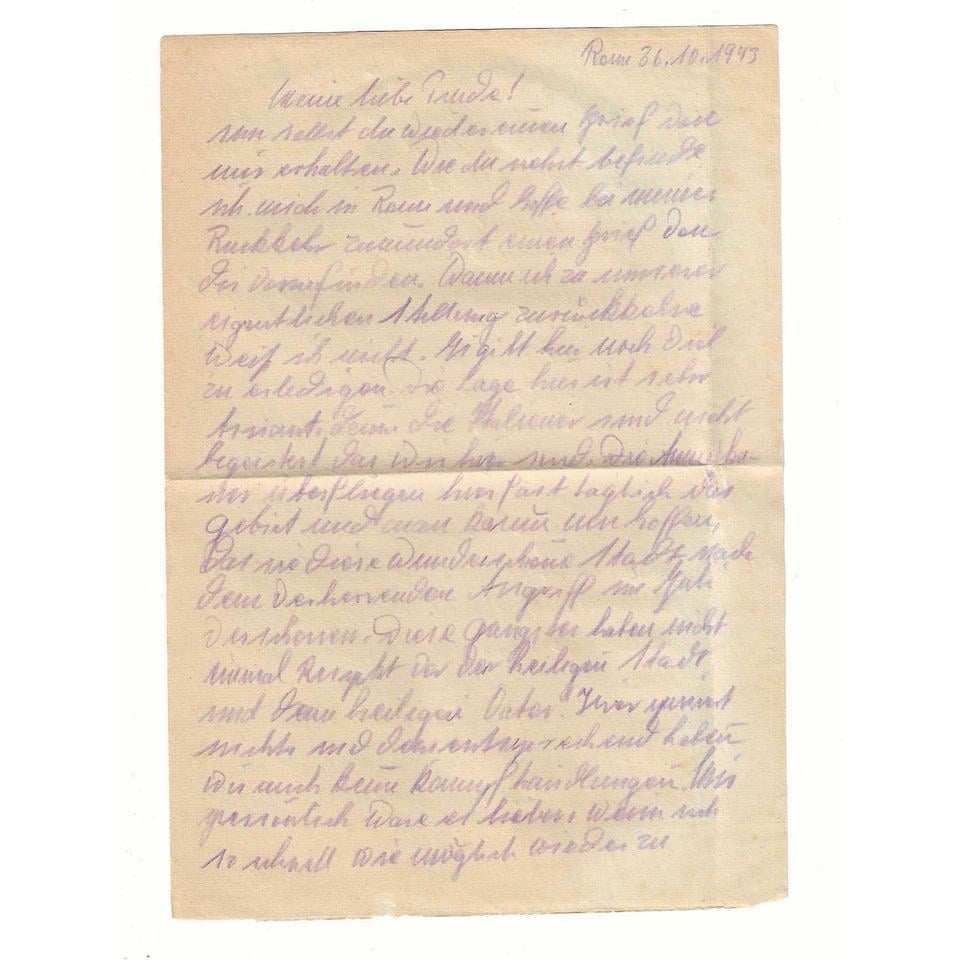 Rom 26.10.1943
Meine liebe Trude!
nun sollst du wieder einen Brief von
mir erhalten. Wie du siehst befinde
ich mich in Rom und hoffe bei meiner
Rückkehr zumindest einen Brief von
dir vorzufinden. Wann ich zu unserer
eigentlichen Stellung zurückkehre
weiß ich nicht. Es gibt hier noch viel
zu erledigen. Die Lage hier ist sehr
brisant, denn die Italiener sind nicht
begeistert das wir hier sind. Die Amerika-
ner überfliegen hier fast täglich das
gebiet und man kann nur hoffen,
das sie diese wunderschöne Stadt nach
dem verherenden Angriff im
verschonen. Diese gangster haben nicht
einmal Respekt vor der heiligen Stadt
und dem heiligen Vater. Hier passiert
nichts und dementsprechend haben
wir auch keine Kampfhandlungen. Mir
persönlich wäre es lieber wenn ich
so schnell wie möglich wieder zu